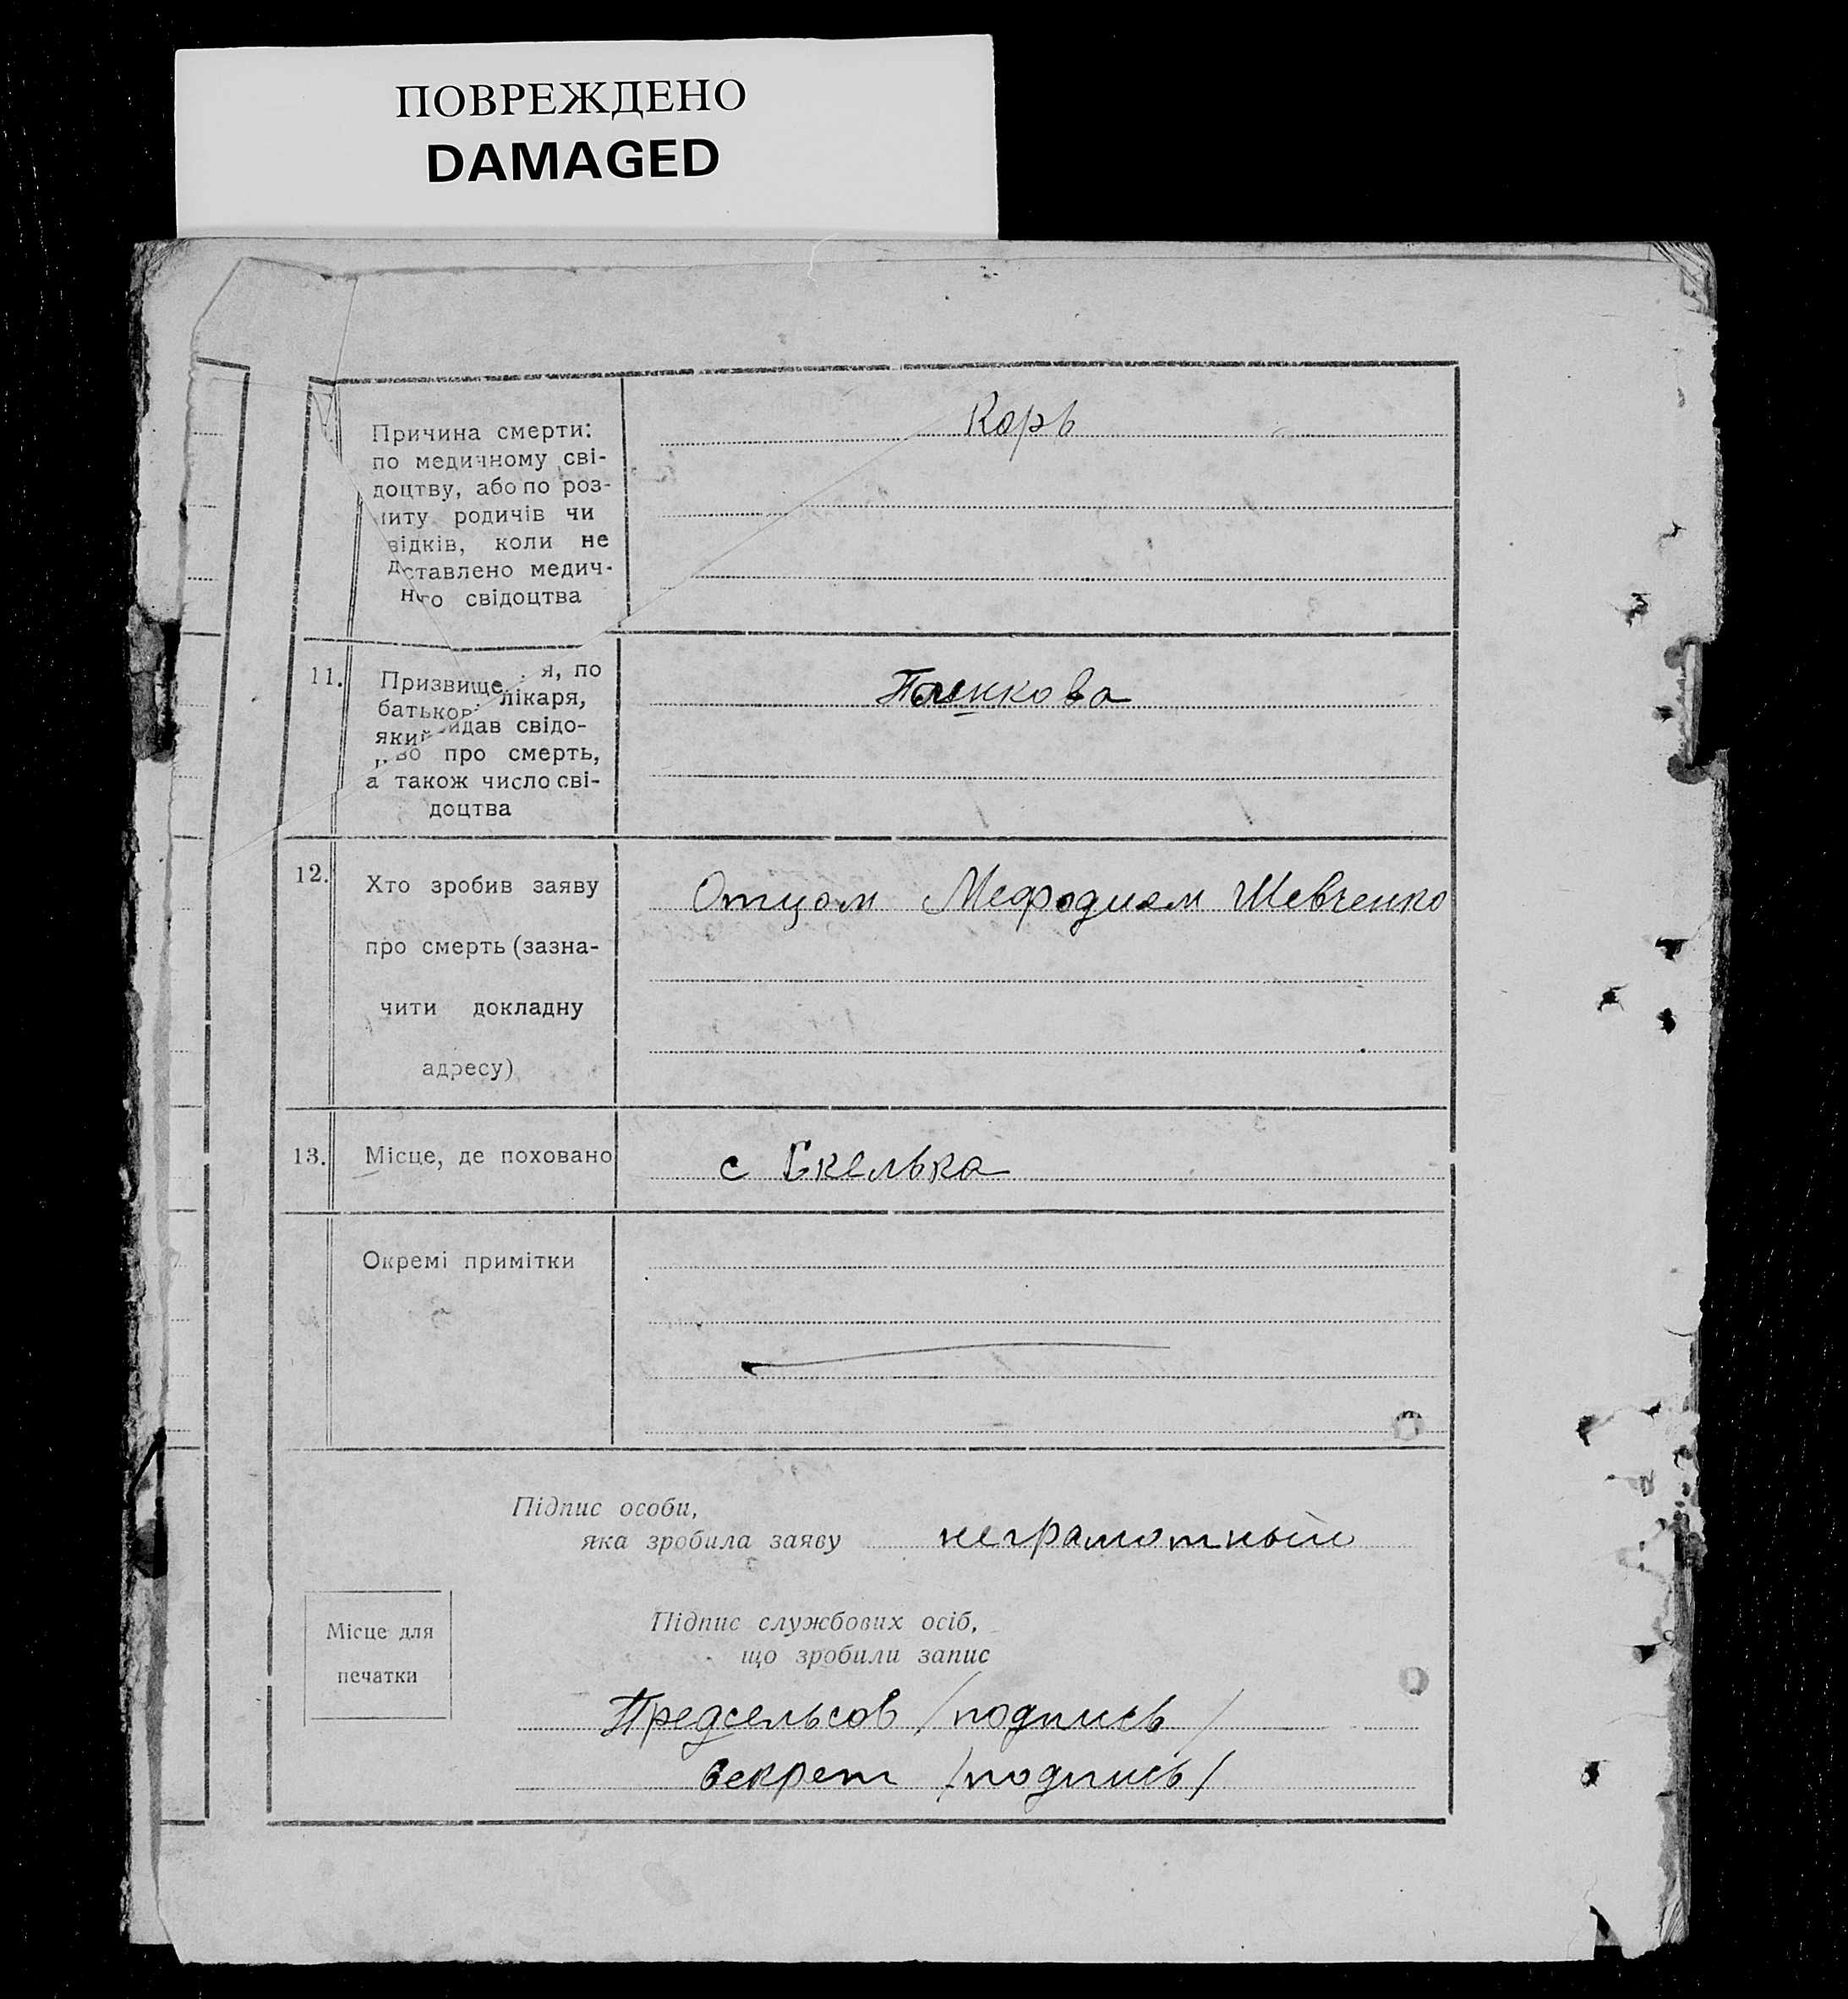 ПОВРЕЖДЕНО
DAMAGED
Причина смерти:
по медичному сві-
доцтву, або по роз-
питу родичів чи
відків, коли не
дставлено медич-
нго свідоцтва
Корь
11. Призвище я, по
батькові лікаря,
який видав свідо-
во про смерть,
а також число сві-
доцтва
12. Хто зробив заяву
про смерть (зазна-
чити докладну
адресу)
Отцом Мефодием Шевченко
13. Місце, де поховано
с Скелька
Окремі примітки
Підпис особи,
яка зробила заяву неграмотный
Місце для
печатки
Підпис службових осіб,
що зробили запис
Предсельсов /подпись/
секрет /подпись/